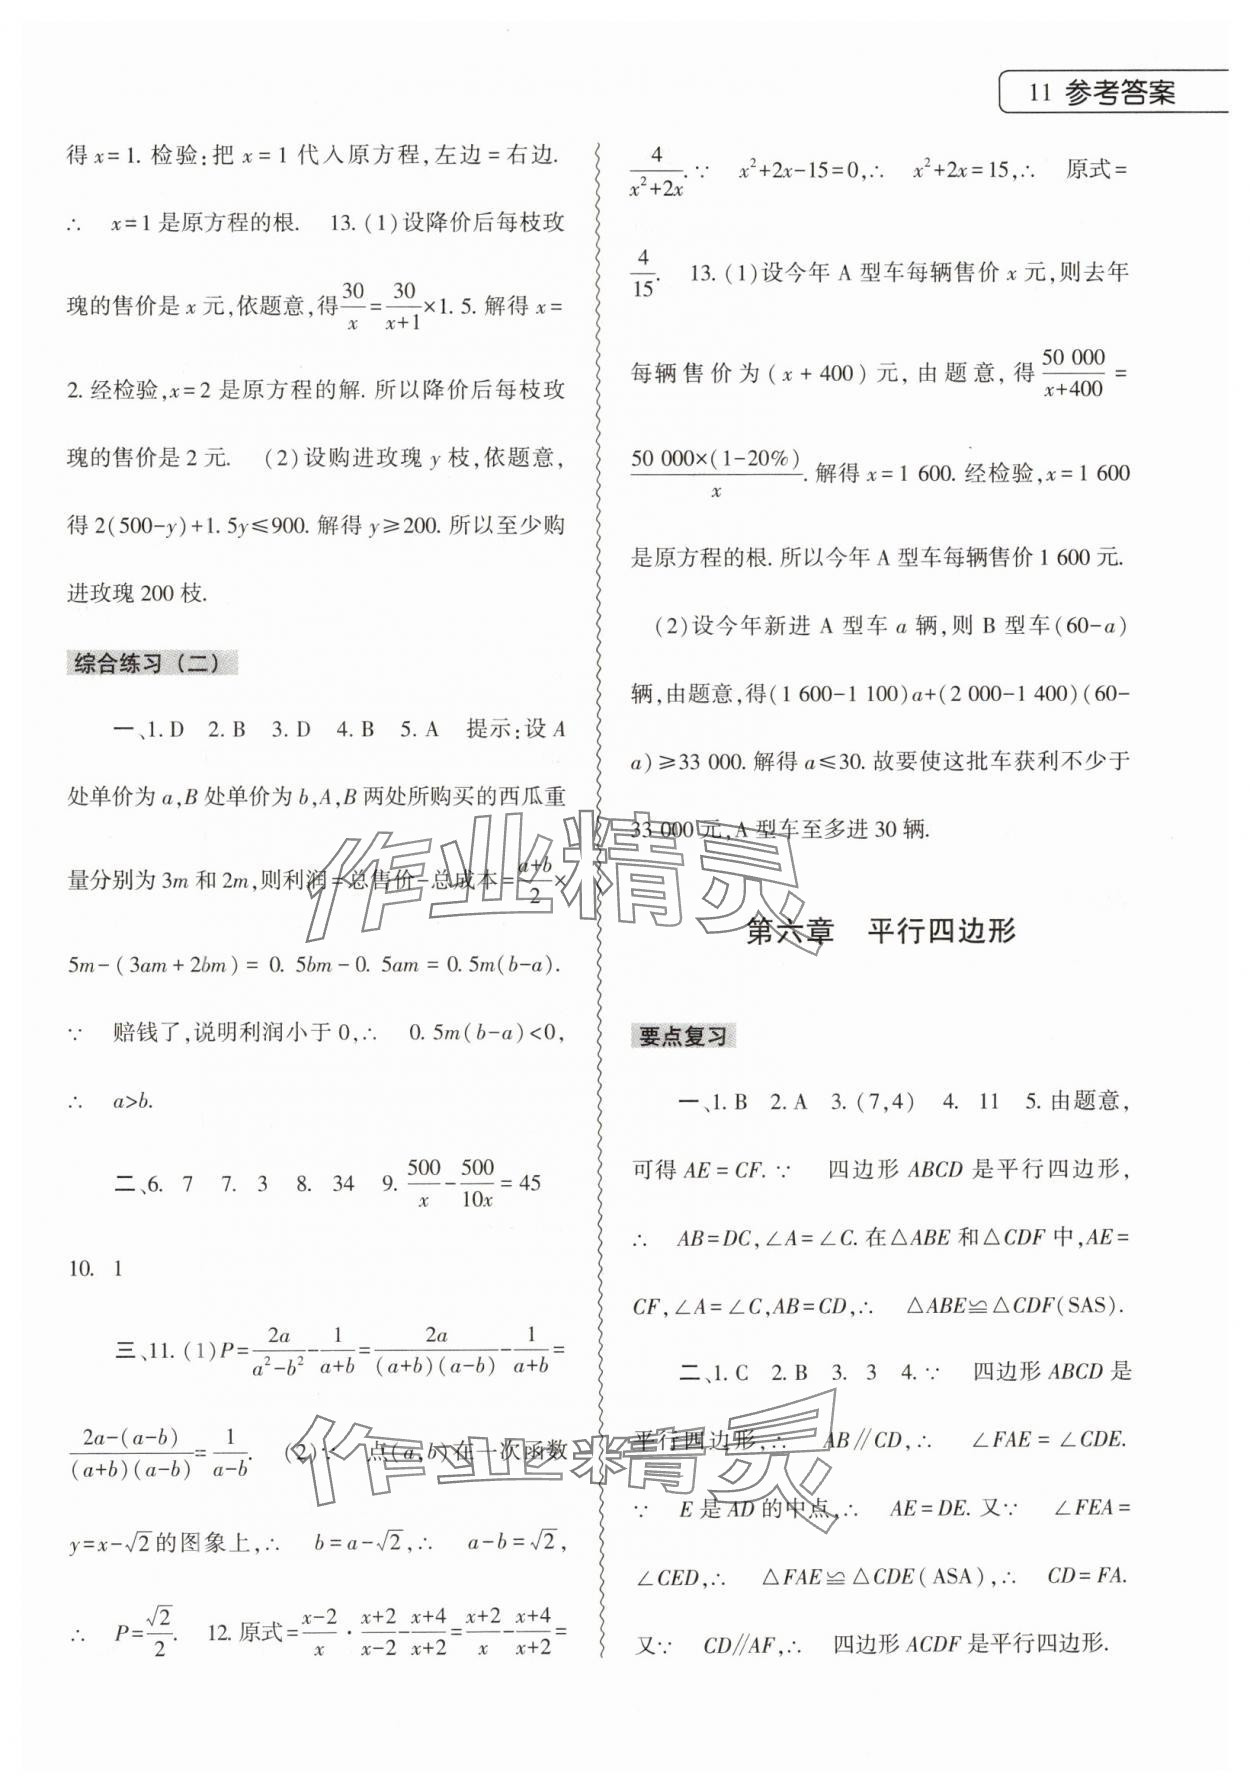 11 参考答案
得 x=1. 检验:把 x=1 代入原方程,左边=右边.
∴ x=1 是原方程的根. 13. (1)设降价后每枝玫
瑰的售价是 x 元,依题意,得30/x=30/(x+1)×1.5. 解得 x=
2. 经检验,x=2 是原方程的解. 所以降价后每枝玫
瑰的售价是 2 元. (2)设购进玫瑰 y 枝,依题意,
得 2(500-y)+1.5y≤900. 解得 y≥200. 所以至少购
进玫瑰 200 枝.
综合练习(二)
一、1. D 2. B 3. D 4. B 5. A 提示:设 A
处单价为 a,B 处单价为 b,A,B 两处所购买的西瓜重
量分别为 3m 和 2m,则利润=总售价-总成本=(a+b)/2×
5m-(3am+2bm)=0.5bm-0.5am=0.5m(b-a).
∵ 赔钱了,说明利润小于 0,∴ 0.5m(b-a)<0,
∴ a>b.
二、6. 7 7. 3 8. 34 9. 500/x-500/10x=45
10. 1
三、11. (1)P=2a/(a²-b²)-1/(a+b)=2a/((a+b)(a-b))-1/(a+b)=
(2a-(a-b))/((a+b)(a-b))=1/(a-b). (2)∵ 点(a,b)在一次函数
y=x-√2的图象上,∴ b=a-√2,∴ a-b=√2,
∴ P=√2/2. 12. 原式=(x-2)/x·(x+2)/(x-2)-(x+4)/(x+2)=(x+2)/x-(x+4)/(x+2)=
4/(x²+2x). ∵ x²+2x-15=0,∴ x²+2x=15,∴ 原式=
4/15. 13. (1)设今年 A 型车每辆售价 x 元,则去年
每辆售价为(x+400)元,由题意,得50 000/(x+400)=
50 000×(1-20%)/x. 解得 x=1 600. 经检验,x=1 600
是原方程的根. 所以今年 A 型车每辆售价 1 600 元.
(2)设今年新进 A 型车 a 辆,则 B 型车(60-a)
辆,由题意,得(1 600-1 100)a+(2 000-1 400)(60-
a)≥33 000. 解得 a≤30. 故要使这批车获利不少于
33 000 元,A 型车至多进 30 辆.
第六章 平行四边形
要点复习
一、1. B 2. A 3. (7,4) 4. 11 5. 由题意,
可得 AE=CF. ∵ 四边形 ABCD 是平行四边形,
∴ AB=DC,∠A=∠C. 在△ABE 和△CDF 中,AE=
CF,∠A=∠C,AB=CD,∴ △ABE≌△CDF(SAS).
二、1. C 2. B 3. 3 4. ∵ 四边形 ABCD 是
平行四边形,∴ AB∥CD,∴ ∠FAE=∠CDE.
∵ E 是 AD 的中点,∴ AE=DE. 又∵ ∠FEA=
∠CED,∴ △FAE≌△CDE(ASA),∴ CD=FA.
又∵ CD∥AF,∴ 四边形 ACDF 是平行四边形.
作业精灵
作业精灵